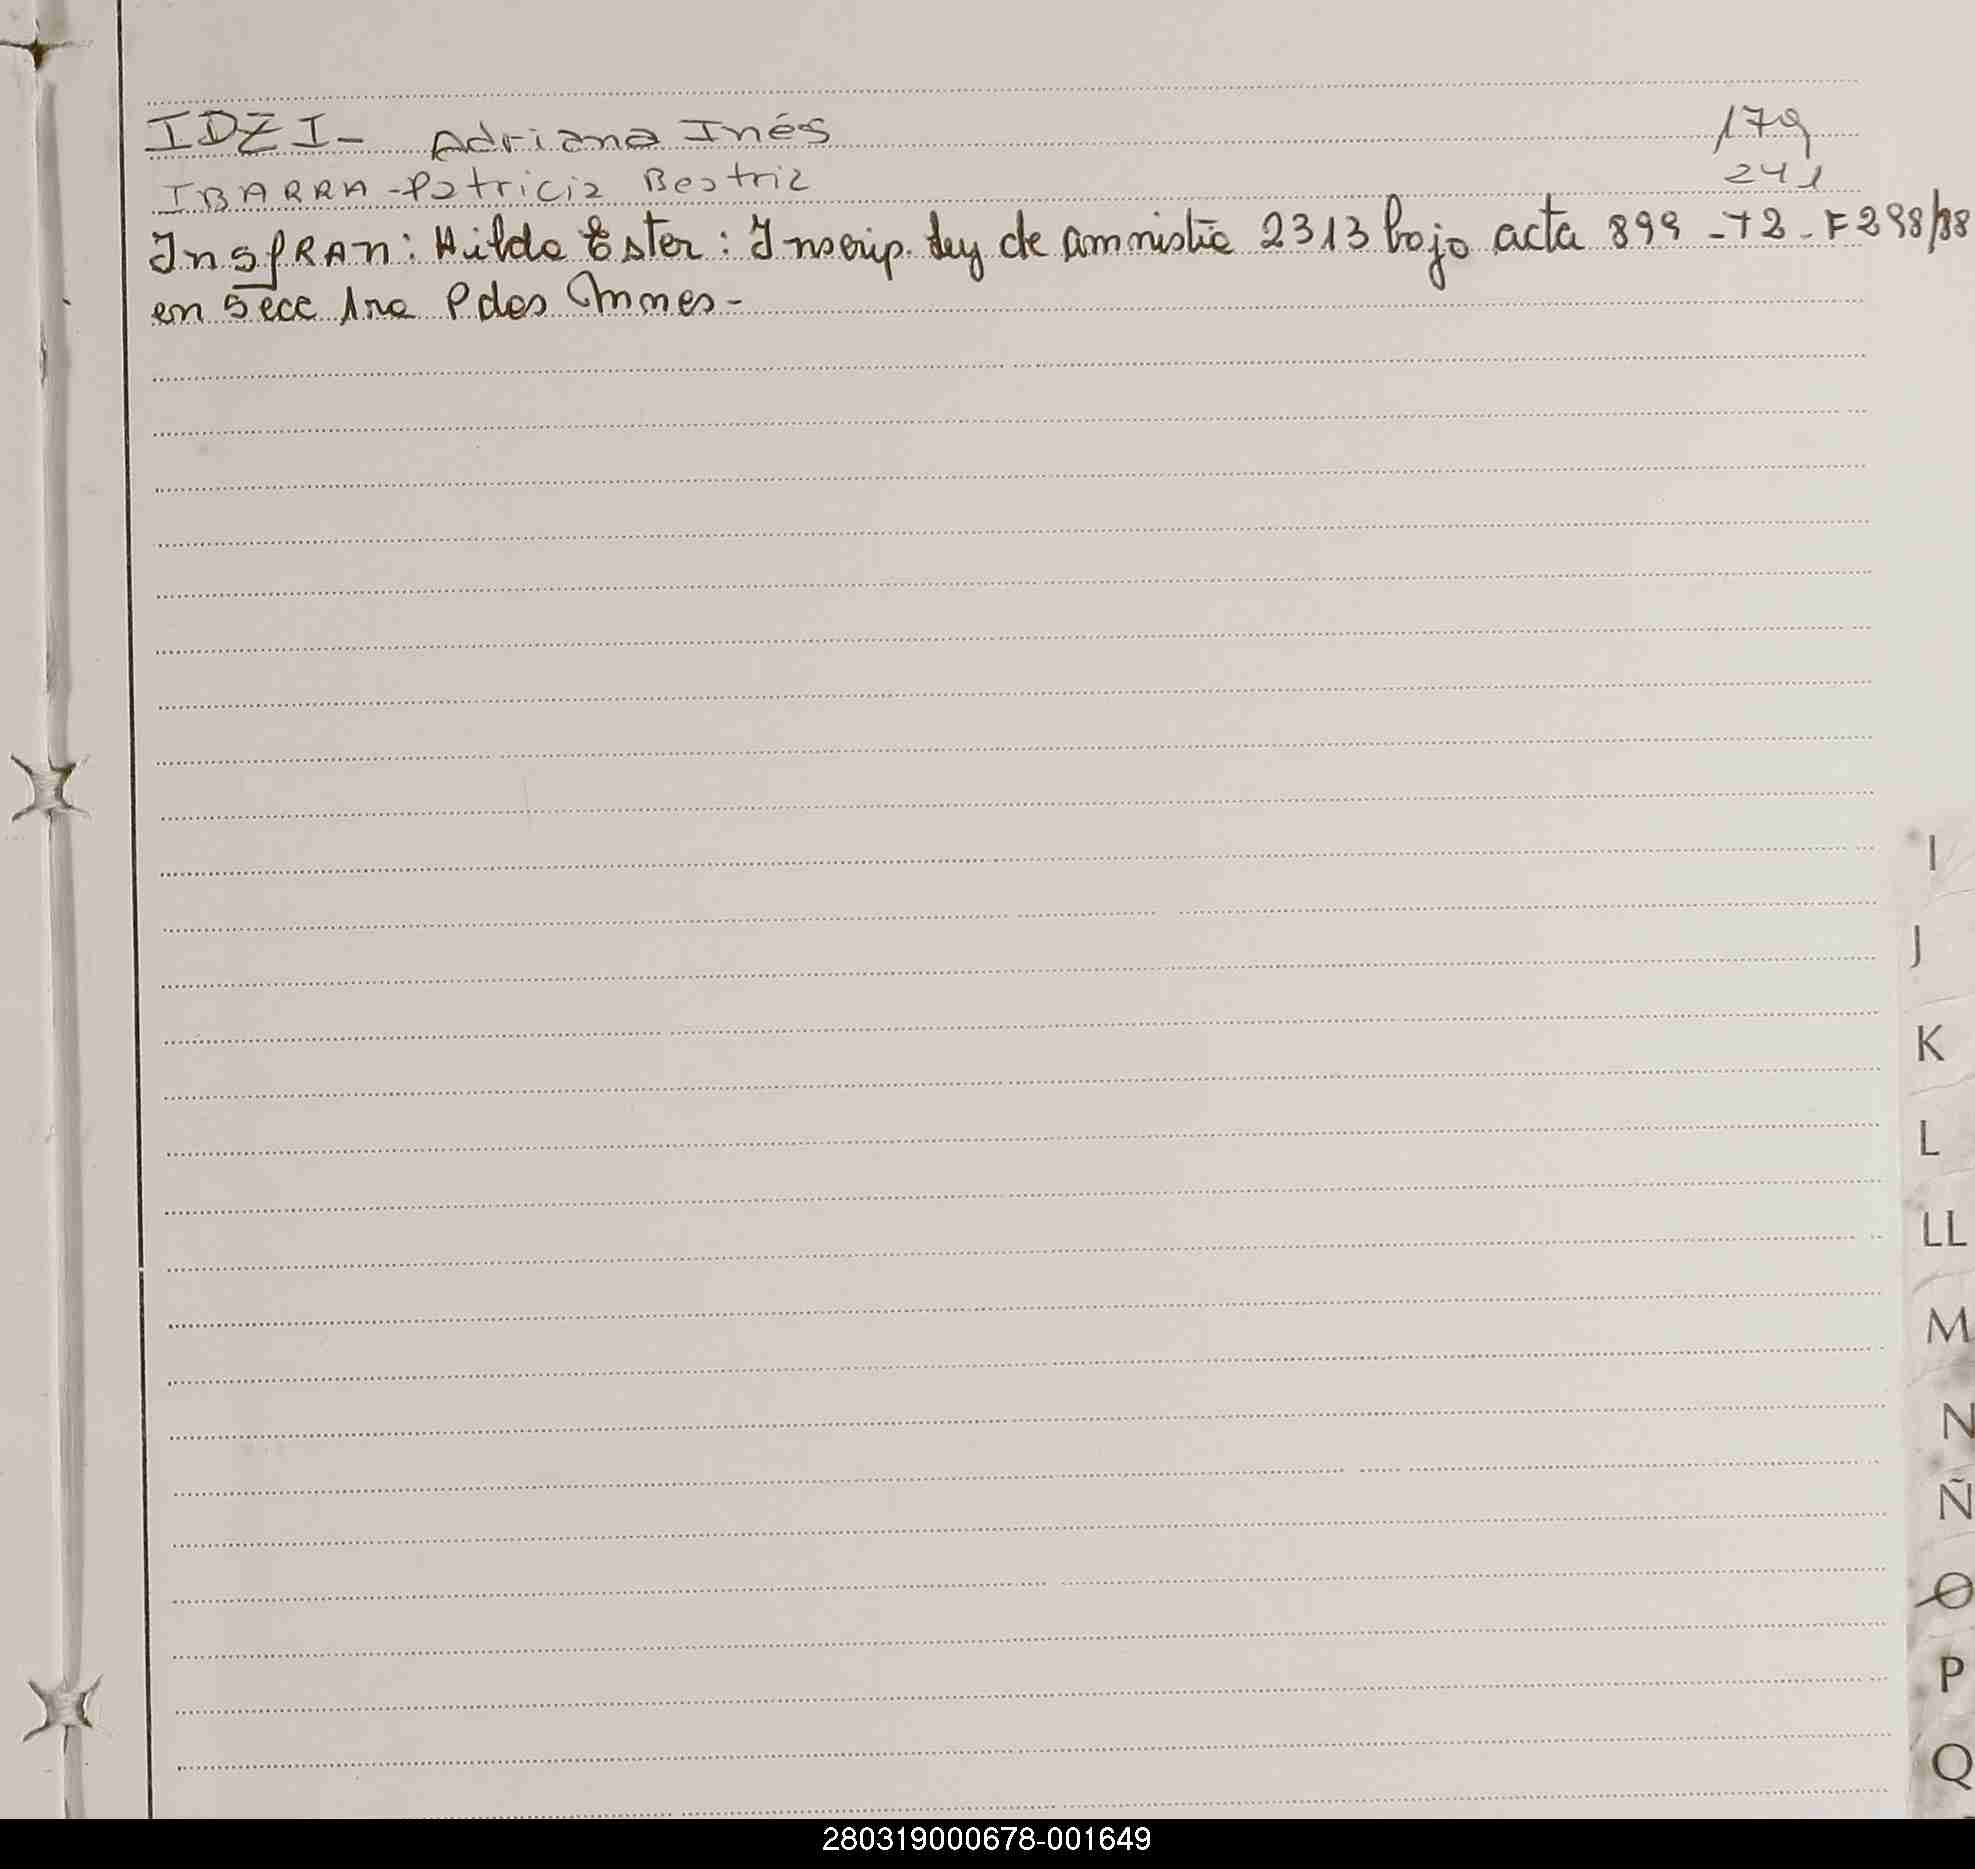 IDZI- Adriana Inés 179
IBARRA-Patricia Beatriz 241
InsfRAn: Hilda Ester: Inscrip. Ley de amnistia 2313 bajo acta 899 -T2- F298/88
en Secc 1ra Pdas
I
J
K
L
LL
M
N
Ñ
O
P
Q
280319000678-001649